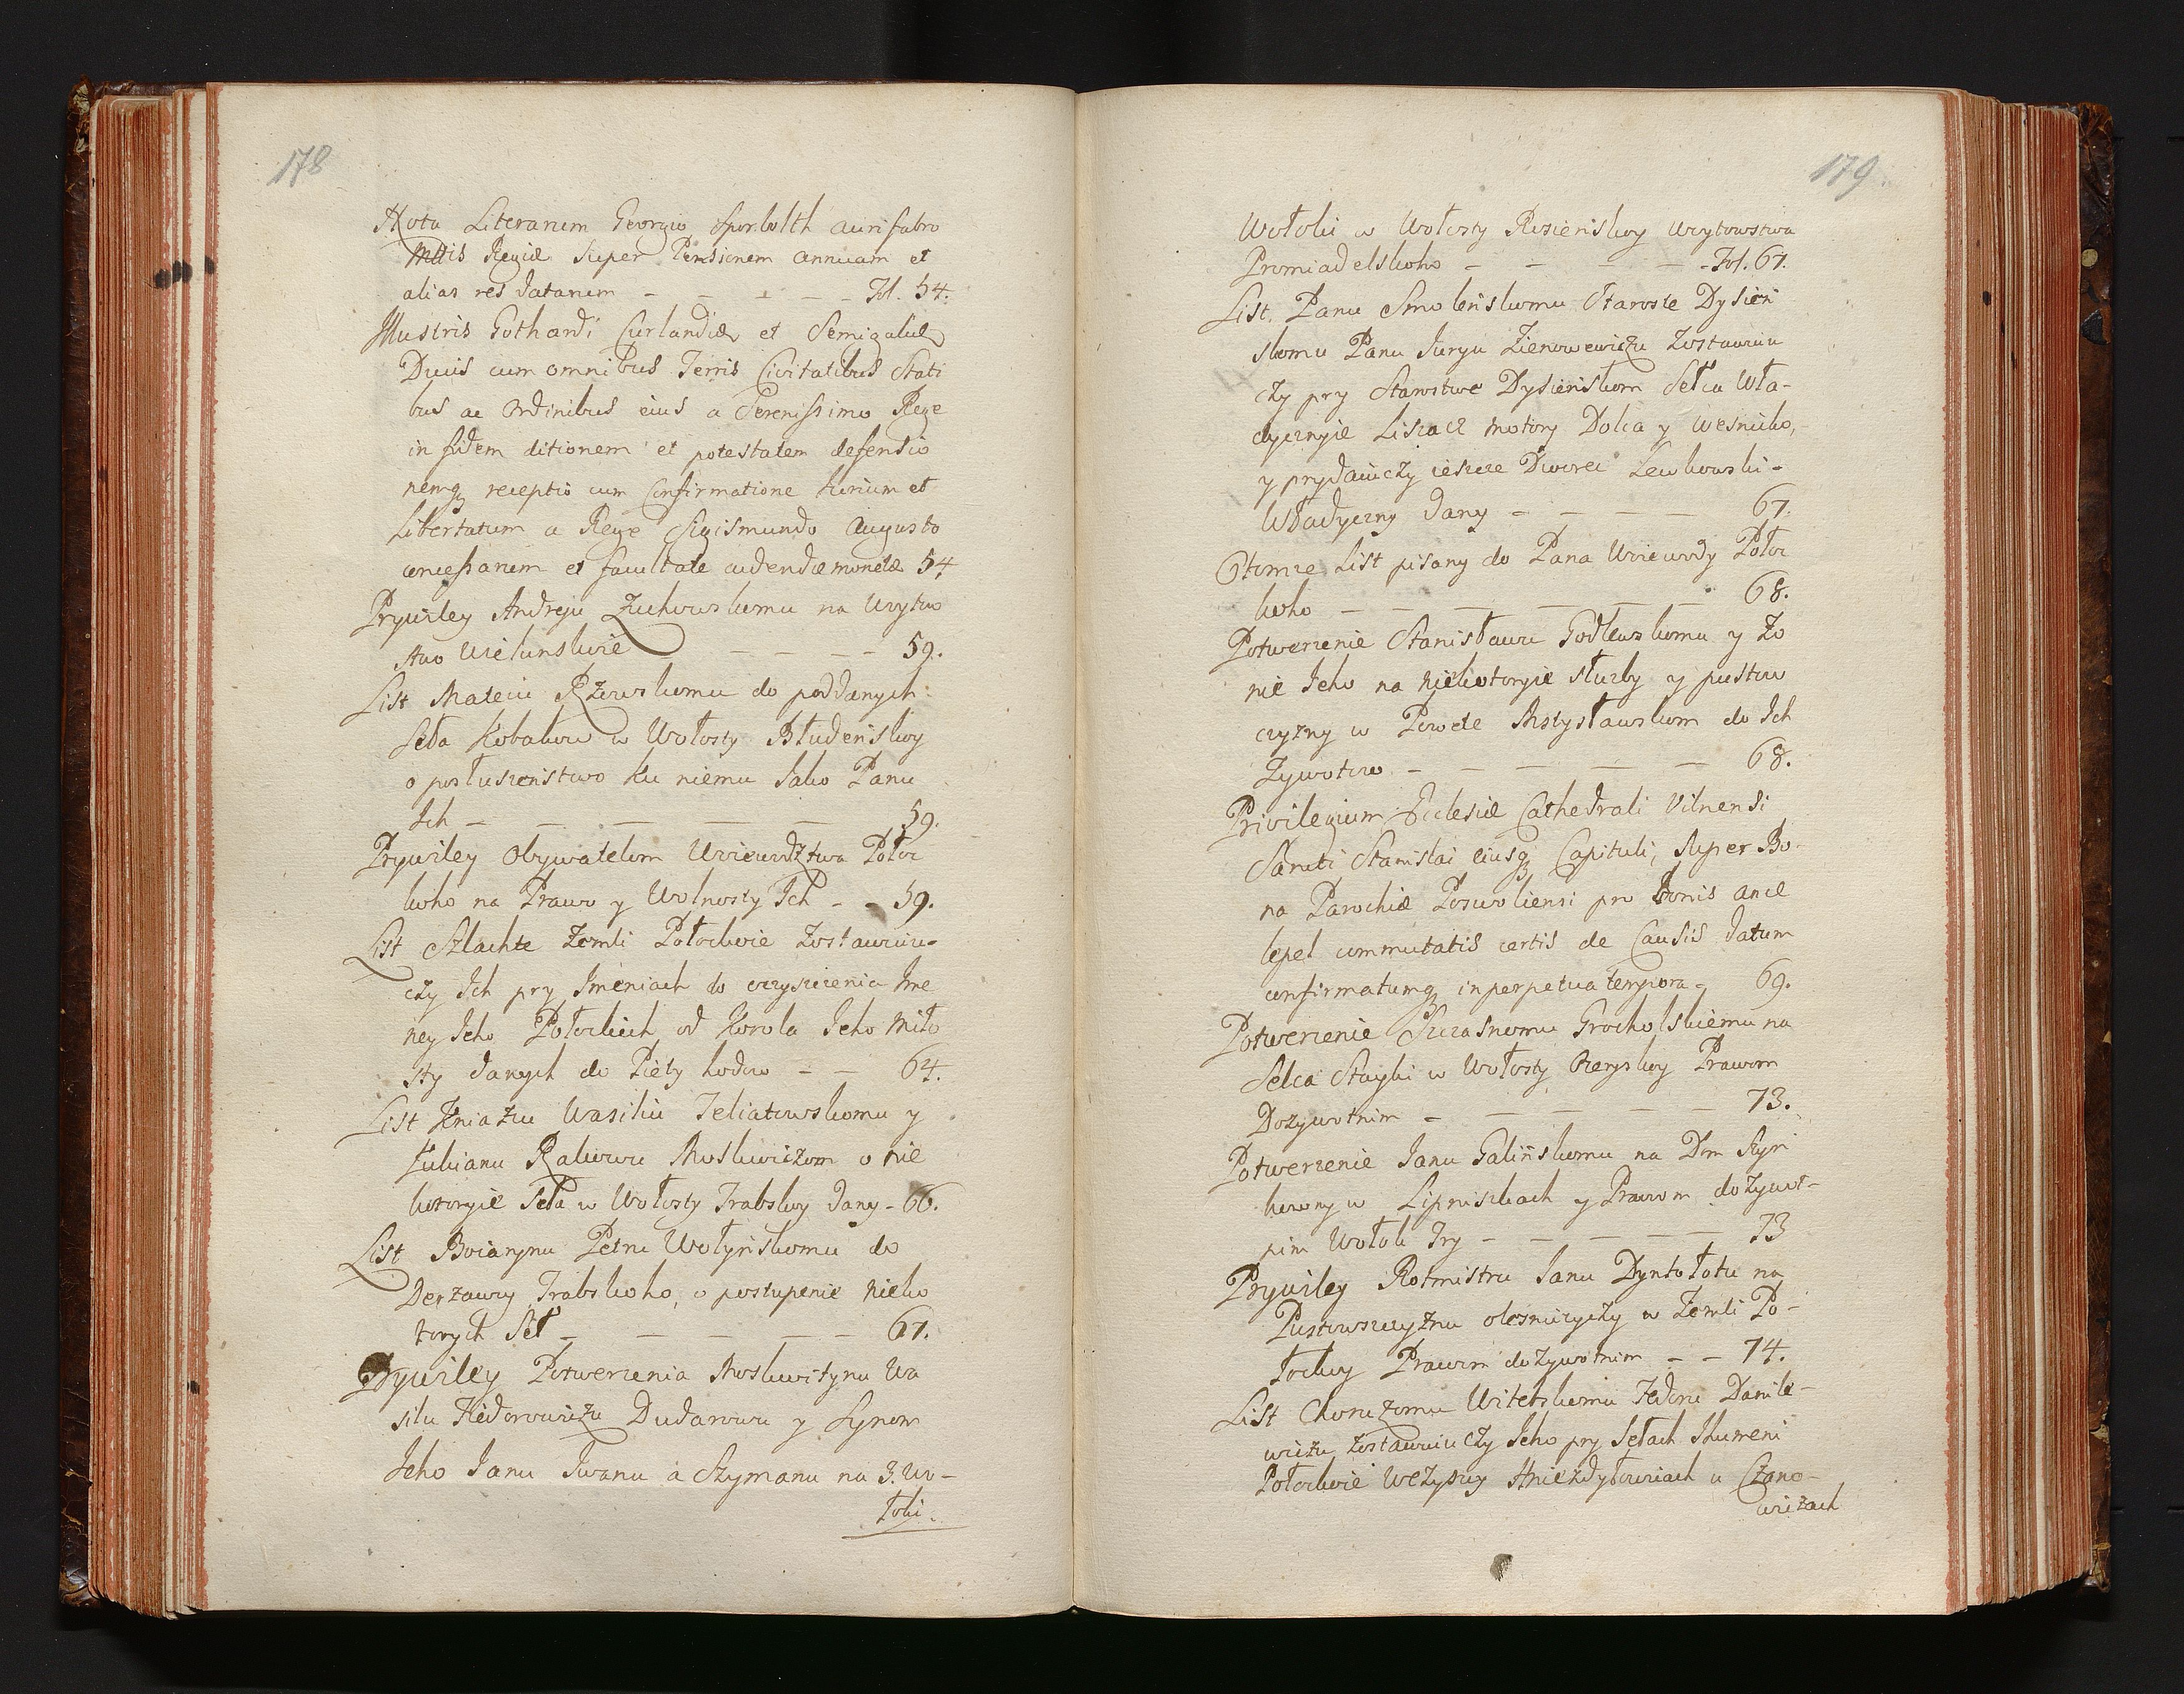 178
Nota Literarum Georgio Sporholth aurifabro
Mttis Regiæ super Pensionem annuam et
alias res datarum – – – – – Fol. 54.
Illustris Gothardi Curlandiæ et Semigaliæ
Ducis cum omnibus Terris Civitatibus Stati
bus ac Ordinibus eius a Serenissimo Rege
in fidem ditionem et potestatem defensio
nemq receptio cum Confirmatione Iurium et
Libertatum a Rege Sigismundo Augusto
concessarum et facultate cudendæ monetæ 54
Prywiley Andreju Zuchowskomu na Woytow
stwo Wielunskoie – – – – 59.
List Mateiu Rzewskomu do poddanych
Seła Kobakow w Wołosty Błudenskoy
o posłuszenstwo ku niemu Jako Panu
Ich – – – – – 59.
Prywiley Obywatelom Woiewodztwa Połoc
koho na Prawo y Wolnosty Ich – – 59.
List Szlachte Zemli Połockoie zostawuiu-
czy Ich pry Imeniach do oczyszczenia Ime
ney Ieho Połockich od Korola Ieho Miło
sty danych do Piety hodow – – 64.
List Kniaziu Wasiliu Teliatewskomu y
Łukianu Rakowu Moskwiczom o nie
kotoryie Seła w Wołosty Trabskoy dany – 66.
List Boiarynu Petru Wołynskomu do
Derzawy Trabskoho, o postupenie nieko
torych Seł – – – – – 67.
Prywiley Potwerzenia Moskwitynu Wa
silu Fiedorowiczu Dudarowu y Synom
Ieho Janu Iwanu a Szymanu na 3. Wo-
łoki.
179.
Wołoki w Wołosty Rosienskoy Woytowstwa
Promiadelskoho – – – – – Fol. 67.
List Panu Smolenskomu Staroste Dysien
skomu Panu Juryu Zienowewiczu Zostawuiu
czy pry Starostwe Dysienskom Sełca Wła-
dycznyie Liszacz Motory Dolca y Wesnicko,
y prydaiuczy ieszcze Dworec Lewkowski-
Władyczny dany – – – – 67.
O tomze List pisany do Pana Woiewody Połoc
koho – – – – – – 68.
Potwerzenie Stanisławu Godlewskomu y Zo
nie Ieho na niekotoryie służby y pustow
czyzny w Powete Mstysławskom do Ich
Zywotow – – – – – 68.
Privilegium Ecclesiæ Cathedrali Vilnensi
Sancti Stanislai eiusq Capituli, super Bo-
na Parochiæ Poswoliensi pro bonis ance
lepel commutatis certis de Causis datum
confirmatumq in perpetua tempora – 69.
Potwerzenie Szczasnomu Grocholskiemu na
Selca Stayki w Wołosty Ozeryskoy Prawom
Dozywotnim – – – – – 73.
Potwerzenie Janu Galinskomu na Dom Syri
kowony w Lipniszkach y Prawom dożywot-
nim Wołok Try – – – – – 73
Prywiley Rotmistru Janu Dyntołotu na
Pustowszczyznu olesniczyczy w Zemli Po-
łockoy Prawom dożywotnim – – 74.
List Choruzomu Witebskomu Fedoru Danile-
wiczu zostawuiuczy Ieho pry Sełach Ihumeni
Połockoie Weżyszcy Hniezdyłowiach u Czano-
wiczach